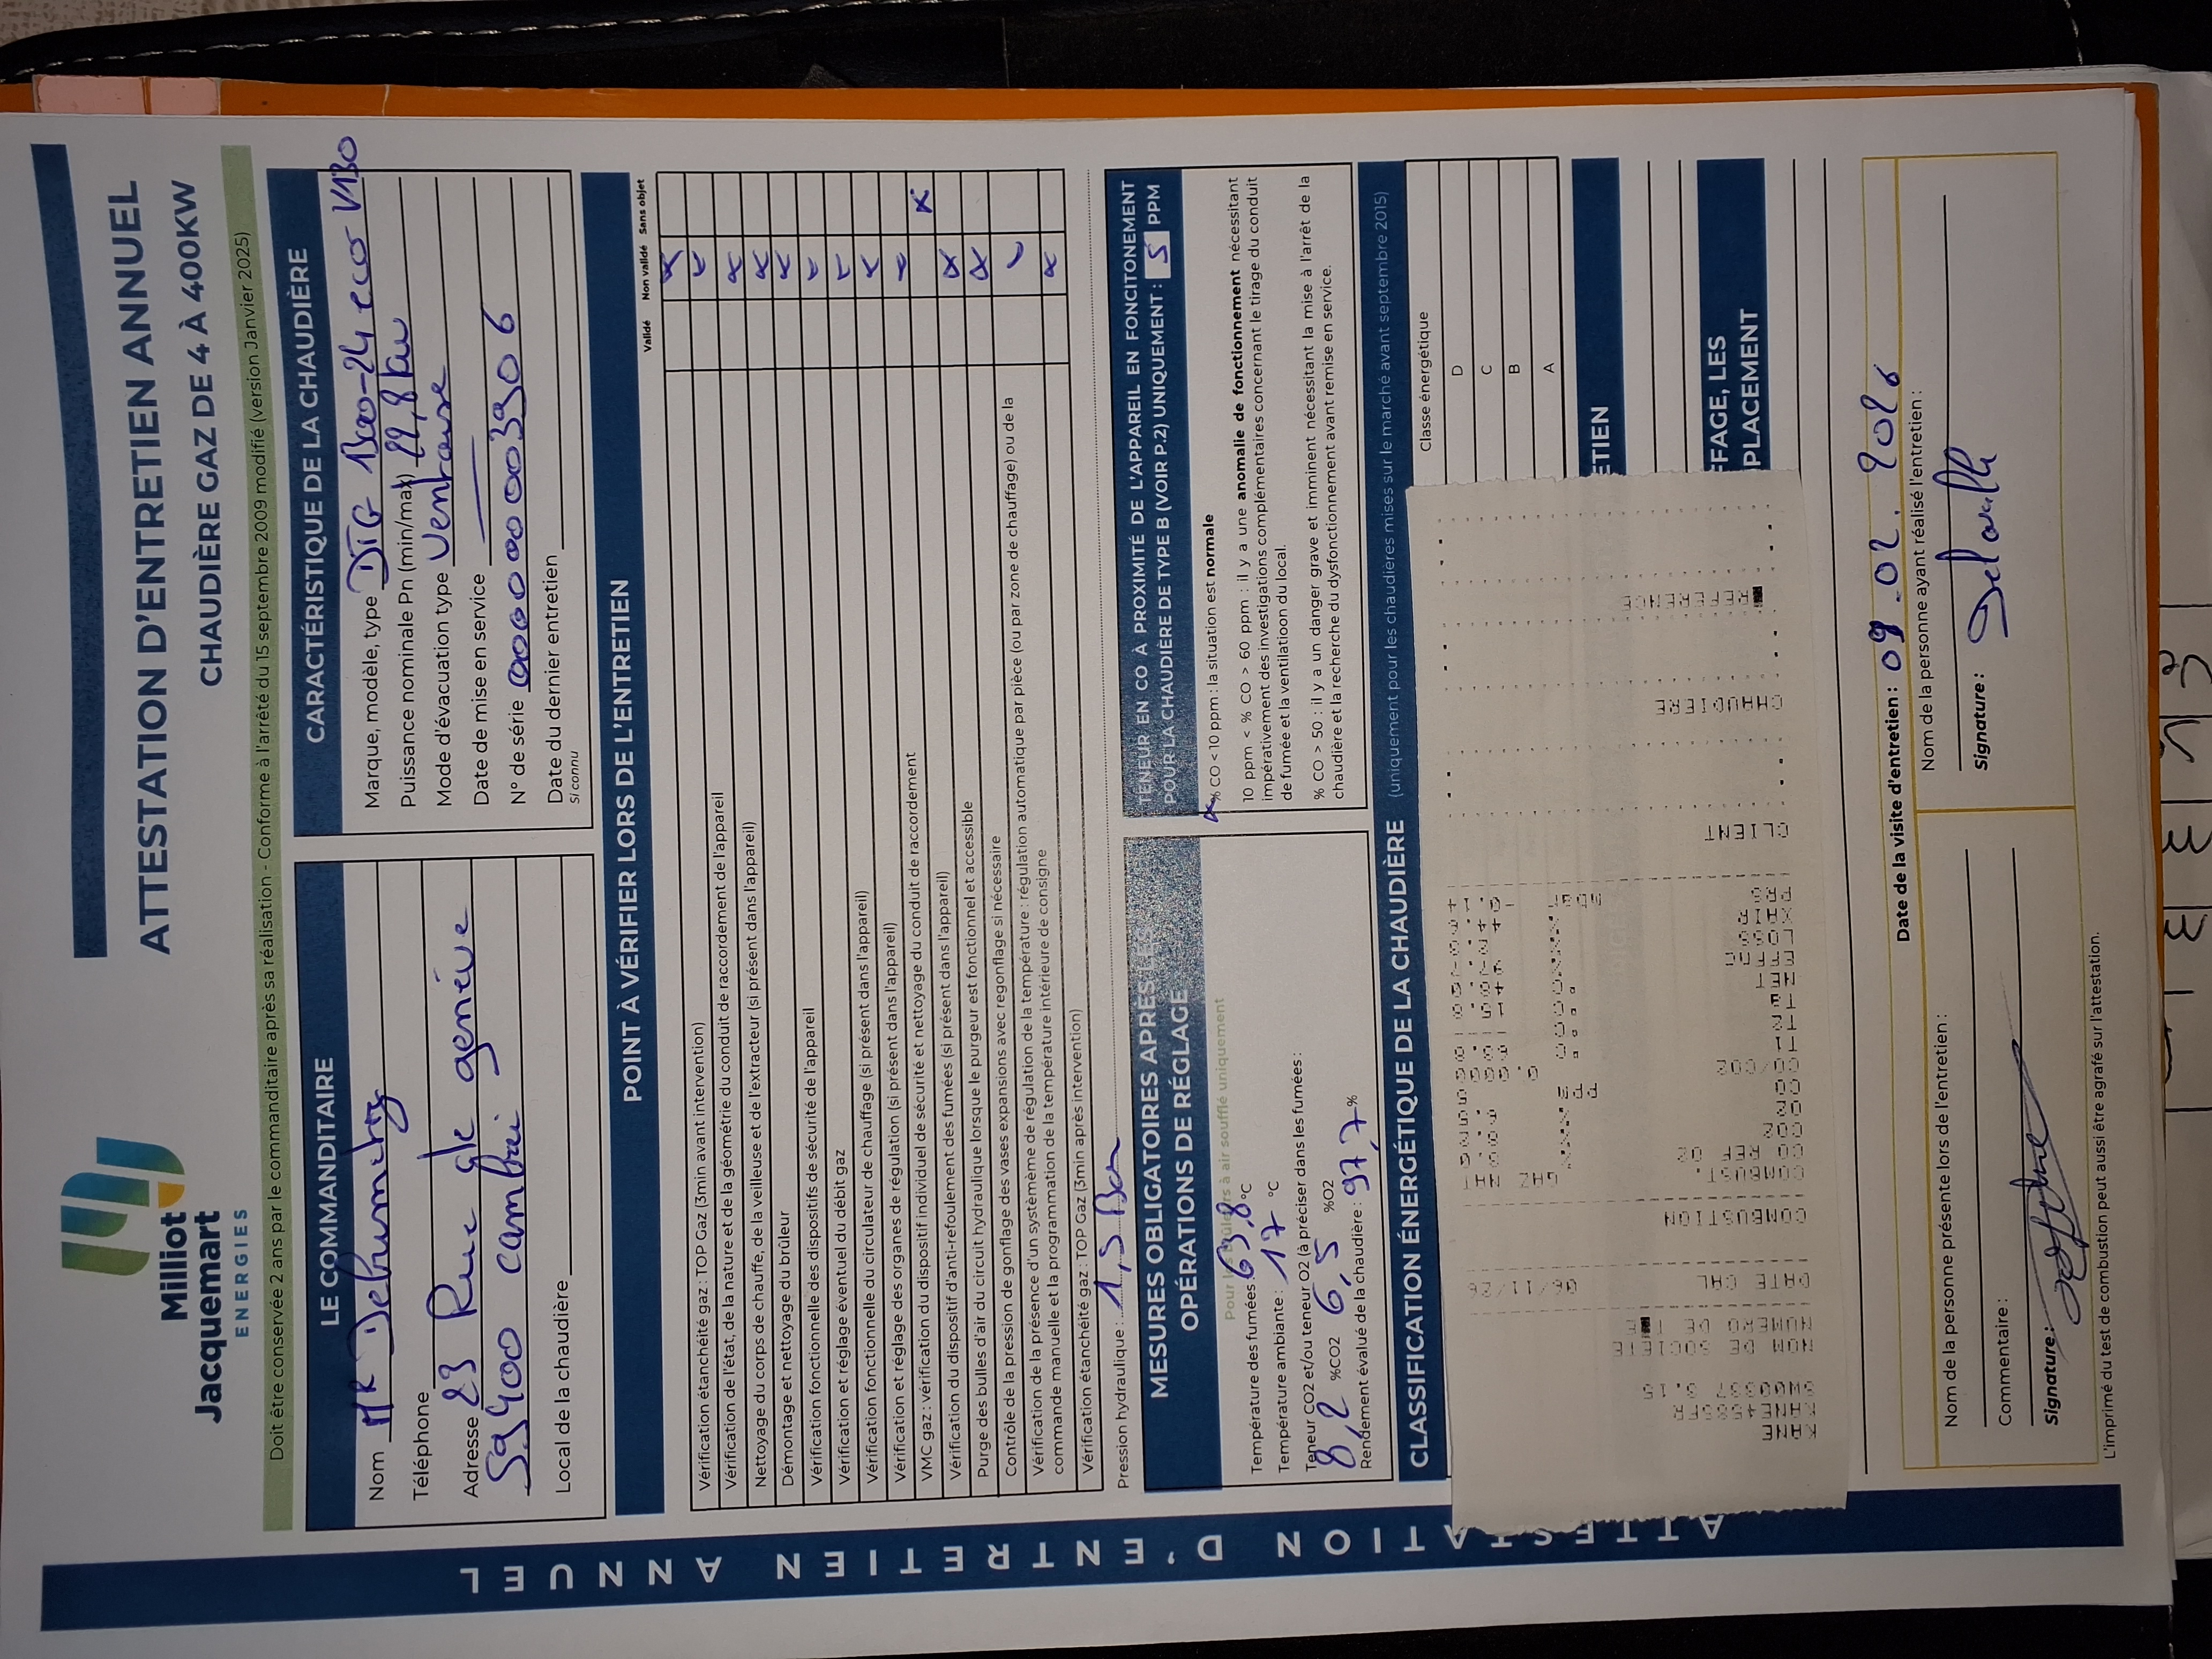 Milliot
Jacquemart
ENERGIES
ATTESTATION D'ENTRETIEN ANNUEL
CHAUDIÈRE GAZ DE 4 À 400KW
Doit être conservée 2 ans par le commanditaire après sa réalisation - Conforme à l'arrêté du 15 septembre 2009 modifié (version Janvier 2025)
LE COMMANDITAIRE
Nom Mr
Téléphone
Adresse 23 Rue
59400 cambrai
Local de la chaudière
CARACTÉRISTIQUE DE LA CHAUDIÈRE
Marque, modèle, type DTG 1300-24 eco V130
Puissance nominale Pn (min/max) 22,8 kw
Mode d'évacuation type Ventouse
Date de mise en service
N° de série
Date du dernier entretien
Si connu
POINT À VÉRIFIER LORS DE L'ENTRETIEN
Validé Non validé Sans objet
Vérification étanchéité gaz : TOP Gaz (3min avant intervention)
Vérification de l'état, de la nature et de la géométrie du conduit de raccordement de l'appareil
Nettoyage du corps de chauffe, de la veilleuse et de l'extracteur (si présent dans l'appareil)
Démontage et nettoyage du brûleur
Vérification fonctionnelle des dispositifs de sécurité de l'appareil
Vérification et réglage éventuel du débit gaz
Vérification fonctionnelle du circulateur de chauffage (si présent dans l'appareil)
Vérification et réglage des organes de régulation (si présent dans l'appareil)
VMC gaz : vérification du dispositif individuel de sécurité et nettoyage du conduit de raccordement
Vérification du dispositif d'anti-refoulement des fumées (si présent dans l'appareil)
Purge des bulles d'air du circuit hydraulique lorsque le purgeur est fonctionnel et accessible
Contrôle de la pression de gonflage des vases expansions avec regonflage si nécessaire
Vérification de la présence d'un systèmème de régulation de la température : régulation automatique par pièce (ou par zone de chauffage) ou de la
commande manuelle et la programmation de la température intérieure de consigne
Vérification étanchéité gaz : TOP Gaz (3min après intervention)
Pression hydraulique : 1,5 Bar
MESURES OBLIGATOIRES APRES LES
OPÉRATIONS DE RÉGLAGE
Pour les brûleurs à air soufflé uniquement
Température des fumées : 63,8 °C
Température ambiante : 17 °C
Teneur CO2 et/ou teneur O2 (à préciser dans les fumées :
8,2 %CO2 6,5 %O2
Rendement évalué de la chaudière : 97,7 %
TENEUR EN CO À PROXIMITÉ DE L'APPAREIL EN FONCITONEMENT
POUR LA CHAUDIÈRE DE TYPE B (VOIR P.2) UNIQUEMENT : 5 PPM
% CO < 10 ppm : la situation est normale
10 ppm < % CO > 60 ppm : il y a une anomalie de fonctionnement nécessitant
impérativement des investigations complémentaires concernant le tirage du conduit
de fumée et la ventilatioon du local.
% CO > 50 : il y a un danger grave et imminent nécessitant la mise à l'arrêt de la
chaudière et la recherche du dysfonctionnement avant remise en service.
CLASSIFICATION ÉNERGÉTIQUE DE LA CHAUDIÈRE (uniquement pour les chaudières mises sur le marché avant septembre 2015)
Classe énergétique
D
C
B
A
ETIEN
FFAGE, LES
PLACEMENT
KANE
KANE458SFR
NOM DE SOCIETE
NUMERO DE
DATE CAL 06/11/26
COMBUSTION
COMBUST. GAZ NAT
CO REF O2
CO/CO2
NET
CLIENT
CHAUDIERE
REFERENCE
Date de la visite d'entretien : 09.02.2026
Nom de la personne présente lors de l'entretien :
Commentaire :
Signature :
Nom de la personne ayant réalisé l'entretien :
Signature :
L'imprimé du test de combustion peut aussi être agrafé sur l'attestation.
ATTESTATION D'ENTRETIEN ANNUEL